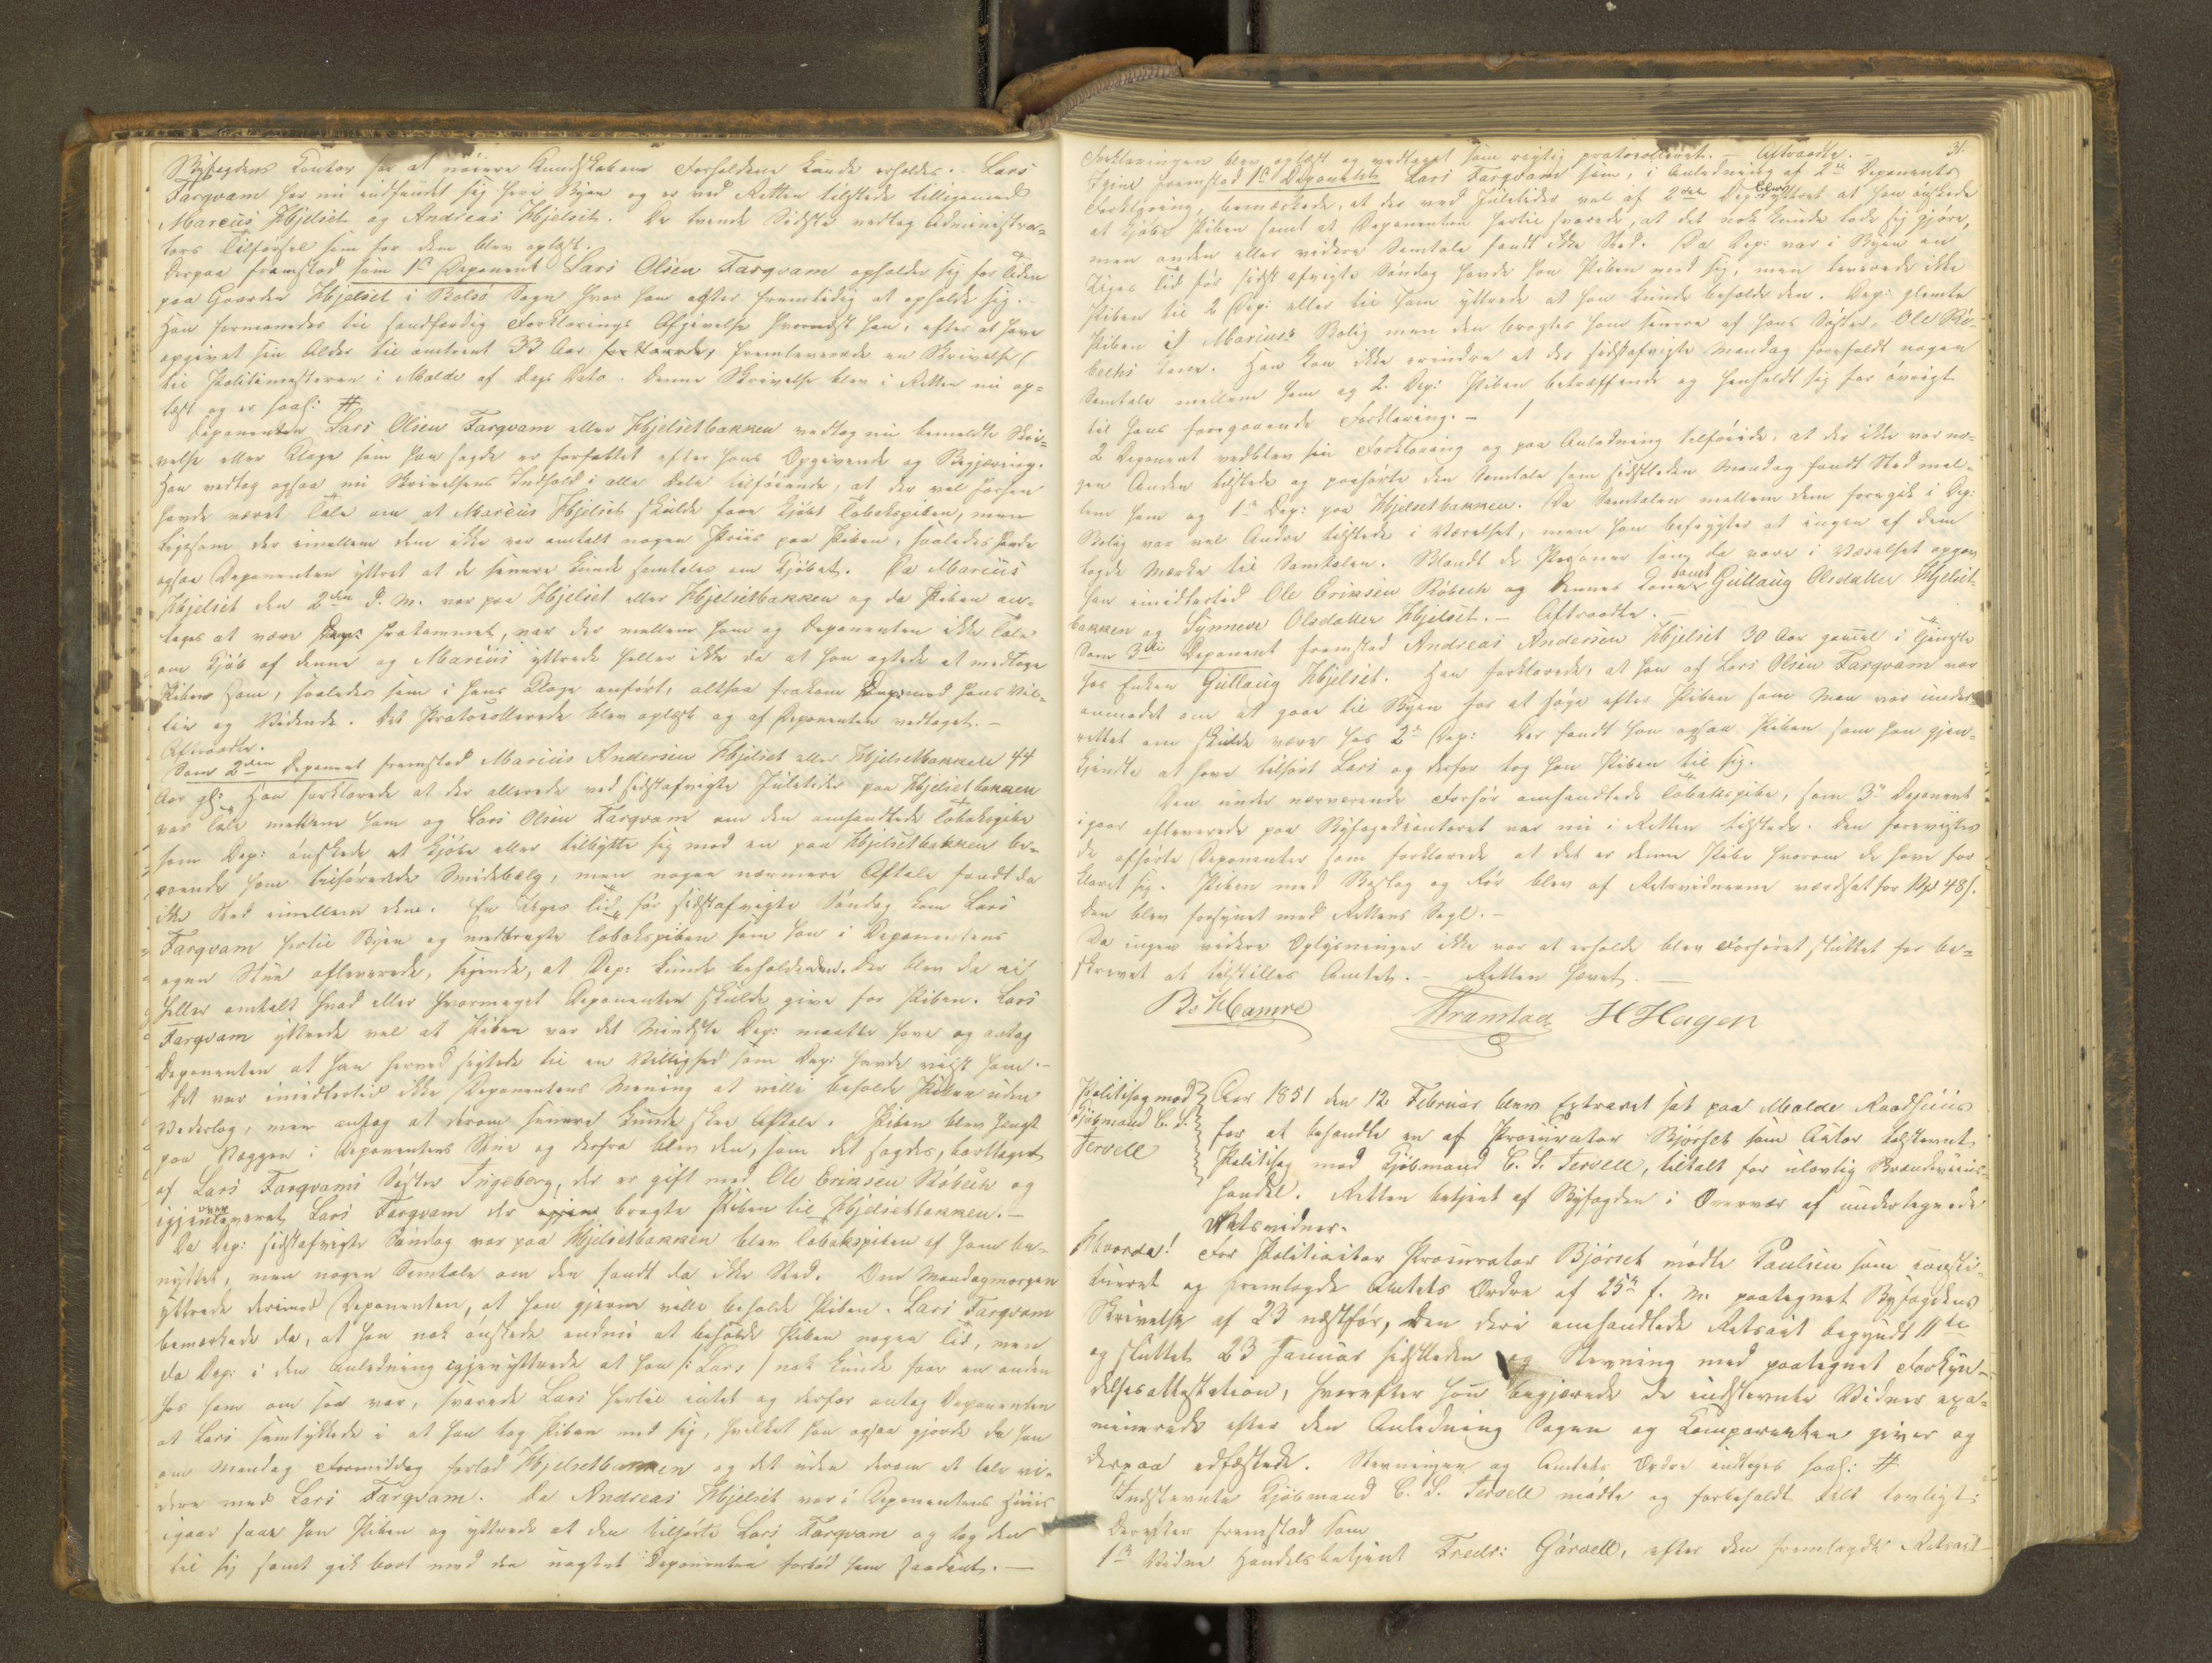 Byfogdens Kontor for at nøiere Kundskab om Forholdene kunde erholdes. Lars
Farqvam har nu indfundet sig her i Byen og er ved Retten tilstede tilligemed
Marcus Hjelset og Andreas Hjelset. De tvende Sidste vedtog Administra-
tors Tilførsel som for dem blev oplæst.
Derpaa fremstod som 1st Deponent Lars Olsen Farqvam opholder sig for Tiden
paa Gaarden Hjelset i Bolsø Sogn hvor han agter fremtidig at opholde sig.
Han formanedes til sandfærdig Forklarings Afgivelse hvornæst han, efter at have
opgivet sin Alder til omtrent 33 Aar forklarede, fremleverede en Skrivelse
til Politimesteren i Molde af Dags Dato. Denne Skrivelse blev i Retten nu op-
læst og er saal: #
Deponenten Lars Olsen Farqvam eller Hjelsetbakken vedtog nu bemeldte Skri-
velse eller Klage som han sagde er forfattet efter hans Opgivende og Begjæring.
Han vedtog ogsaa nu Skrivelsens Indhold i alle Dele tilføiende, at der vel forhen
havde været Tale om at Marcus Hjelset skulde faae kjøbt Tobakspiben, men
ligesom der imellem dem ikke var omtalt nogen Priis paa Piben, saaledes havde
ogsaa Deponenten yttret at de senere kunde samtales om Kjøbet. Da Marcus
Hjelset den 2den d. M. var paa Hjelset eller Hjelsetbakken og da Piben an-
tages at være Dep: frakommet, var der mellem ham og Deponenten ikke Tale
om Kjøb af denne og Marius yttrede heller ikke da at han agtede at medtage
Piben ham, saaledes som i hans Klage anført, altsaa frakom Dep: mod hans Vil-
lie og Vidende. Det Protocollerede blev oplæst og af Deponenten vedtaget. -
Aftraadte.
Som 2den Deponent fremstod Marius Andersen Hjelset eller Hjelsetbakken 44
Aar gl: Han forklarede at der allerede ved sidstafvigte Juletider paa Hjelsetbakken
var Tale mellem ham og Lars Olsen Farqvam om den omhandlede Tobakspibe
som Dep: ønskede at kjøbe eller tilbytte sig mod en paa Hjelsetbakken be-
roende ham tilhørende Smidebelg, men nogen nærmere Aftale fandt da
ikke Sted imellem dem. En Uges Tid før sidstafvigte Søndag kom Lars
Farqvam hertil Byen og medbragte Tobakspiben som han i Deponentens
egen Stue afleverede, sigende, at Dep: kunde beholde den. Der blev da ei
heller omtalt hvad eller hvormeget Deponenten skulde give for Piben. Lars
Farqvam yttrede vel at Piben var det Mindste Dep: maatte have og antog
Deponenten at han herved sigtede til en Villighed som Dep: havde viist ham. -
Det var imidlertid ikke Deponentens Mening at ville beholde Piben uden
Vederlag, men antog at derom senere kunde skee Aftale. Piben blev hængt
paa Væggen i Deponentens Stue og derfra blev den, som det sagdes, borttaget
af Lars Farqvams Søster Ingeborg, der er gift med Ole Eriksen Røbech og
igjen leveret Lars Farqvam der igjen bragte Piben til Hjelsetbakken. -
Da Dep: sidstafvigte Søndag var paa Hjelsetbakken blev Tobakspiben af ham be-
nyttet, men nogen Samtale om den fandt da ikke Sted. Om Mandagmorgen
yttrede derimod Deponenten, at han gjerne ville beholde Piben. Lars Farqvam
bemærkede da, at han nok ønskede endnu at beholde Piben nogen Tid, men
da Dep: i den Anledning igjen yttrede at han /: Lars / nok kunde faae en anden
hos ham om saa var, svarede Lars hertil intet og derfor antog Deponenten
at Lars samtykkede i at han tog Piben med sig, hvilket han ogsaa gjorde da han
om Mandag Formiddag forlod Hjelsetbakken og det uden derom at tale vi-
dere med Lars Farqvam. Da Andreas Hjelset var i Deponentens Huus
igaar saae han Piben og yttrede at den tilhørte Lars Farqvam og tog den
til sig samt gik bort med den uagtet Deponenten forbød ham saadant. -
31.
Forklaringen blev oplæst og vedtaget som rigtig protocolleret. - Aftraadte. -
Igjen fremstod 1st Deponent Lars Farqvam som, i Anledning af 2den Deponents
Forklaring, bemærkede, at der ved Juletider vel af 2den Dep: blev yttret at han ønskede
at kjøbe Piben samt at Deponenten hertil svarede, at det nok kunde lade sig gjøre,
men anden eller videre Samtale fandt ikke Sted. Da Dep: var i Byen en
Uges Tid før sidst afvigte Søndag havde han Piben med sig, men leverede ikke
Piben til 2 Dep: eller til ham yttrede at han kunde beholde den. Dep: glemte
Piben i Marius's Bolig men den bragtes ham senere af hans Søster, Ole Rø-
bechs Kone. Han kan ikke erindre at der sidstafvigte Mandag forefaldt nogen
Samtale mellem ham og 2. Dep: Piben betræffende og henholdt sig for øvrigt
til hans foregaaende Forklaring. -
2 Deponent vedblev sin Forklaring og paa Anledning tilføiede, at der ikke var no-
gen Anden tilstede og paahørte den Samtale som sidstleden Mandag fandt Sted mel-
lem ham og 1st Dep: paa Hjelsetbakken. Da Samtalen mellem dem foregik i Dep:
Bolig var vel Andre tilstede i Værelset, men han befrygter at ingen af dem
lagde Mærke til Samtalen. Blandt de Personer som da vare i Værelset opgav
han imidlertid Ole Eriksen Røbech og dennes Kone samt Gullaug Olsdatter Hjelset-
bakken og Synneve Olsdatter Hjelset. - Aftraadte. -
Som 3die Deponent fremstod Andreas Andersen Hjelset 30 Aar gammel i Tjeneste
hos Enken Gullaug Hjelset. Han forklarede, at han af Lars Olsen Farqvam var
anmodet om at gaae til Byen for at søge efter Piben som Man var under-
rettet om skulde være hos 2den Dep: Der fandt han ogsaa Piben som han gjen-
kjendte at have tilhørt Lars og derfor tog han Piben til sig.
Den under nærværende Forhør omhandlede Tobakspibe, som 3die Deponent
igaar afleverede paa Byfogedcontoret var nu i Retten tilstede. Den forevistes
de afhørte Deponenter som forklarede at det er denne Pibe hvorom de have for
klaret sig. Piben med Beslag og Rør blev af Retsvidnerne værdsat for 48 s.
Den blev forsynet med Rettens Segl. -
Da ingen videre Oplysninger ikke var at erholde blev Forhøret sluttet for be-
skrevet at tilstilles Amtet. - Retten hævet. -
B. Hamre Transtad H Hagen
Politisag mod
Kjøbmand C. L.
Tervell
Aar 1851 den 12 Februar blev Extraret sat paa Molde Raadhuus
for at behandle en af Procurator Bjørset som Actor tilstevnt
Politisag mod Kjøbmand C. L. Tervell, tiltalt for ulovlig Brændeviins-
handel. Retten betjent af Byfogden i Overvær af undertegnede
Retsvidner.
Hvorda! For Politiactor Procurator Bjørset mødte Paulsen som consti-
tueret og fremlagde Amtets Ordre af 25de f. M. paategnet Byfogdens
Skrivelse af 23 næstfør, den deri omhandlede Retsact begyndt 11te
og sluttet 23 Januar sidstleden og Stevning med paategnet Forkyn-
delsesattestation, hvorefter han begjærede de indstevnte Vidner exa-
minerede efter den Anledning Sagen og Comparenten giver og
derpaa edfæstede. Stevningen og Amtets Ordre indtages saal: #
Indstevnte Kjøbmand C. L. Tervell mødte og forbeholdt Alt lovligt:
Derefter fremstod som
1ste Vidne Handelsbetjent Fredr: Gørvell, efter den fremlagde Retsact